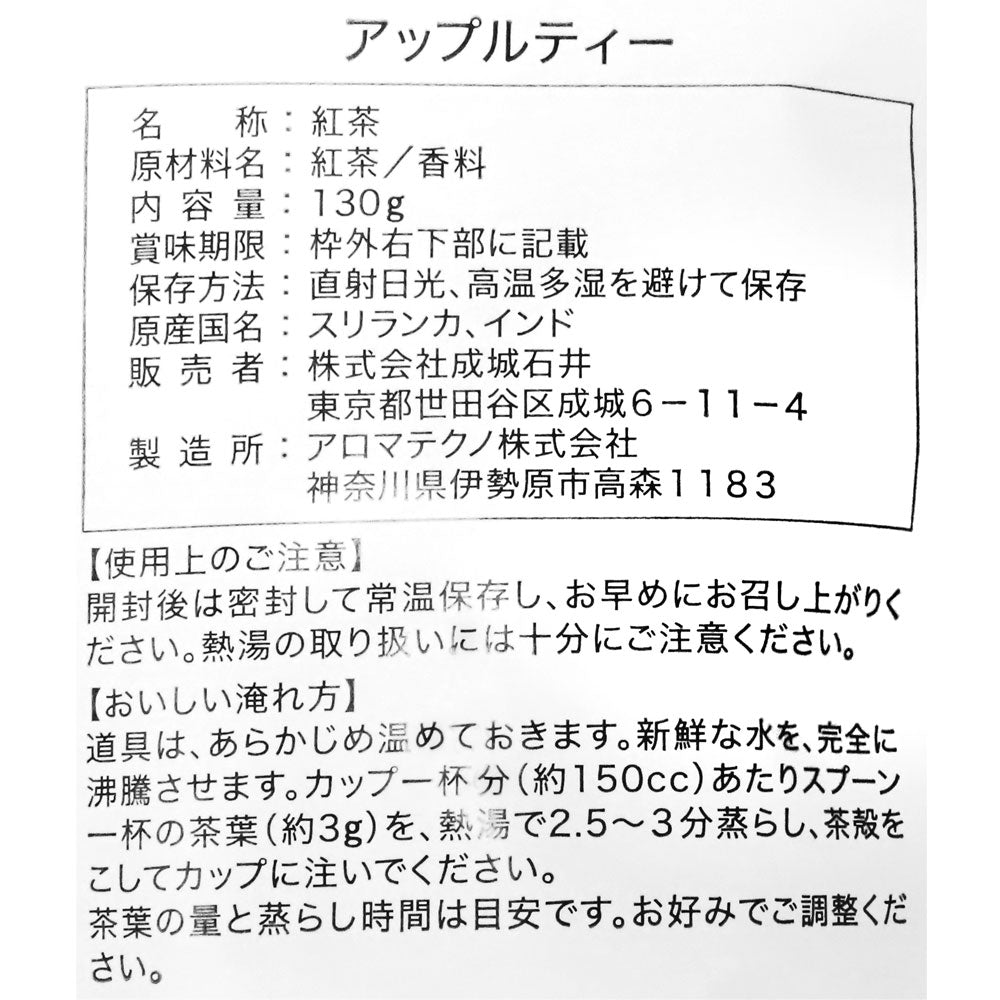 アップルティー
名　　称：紅茶
原材料名：紅茶／香料
内 容 量：130g
賞味期限：枠外右下部に記載
保存方法：直射日光、高温多湿を避けて保存
原産国名：スリランカ、インド
販 売 者：株式会社成城石井
東京都世田谷区成城6－11－4
製 造 所：アロマテクノ株式会社
神奈川県伊勢原市高森1183
【使用上のご注意】
開封後は密封して常温保存し、お早めにお召し上がりく
ださい。熱湯の取り扱いには十分にご注意ください。
【おいしい淹れ方】
道具は、あらかじめ温めておきます。新鮮な水を、完全に
沸騰させます。カップ一杯分（約150cc）あたりスプーン
一杯の茶葉（約3g）を、熱湯で2.5～3分蒸らし、茶殻を
こしてカップに注いでください。
茶葉の量と蒸らし時間は目安です。お好みでご調整くだ
さい。